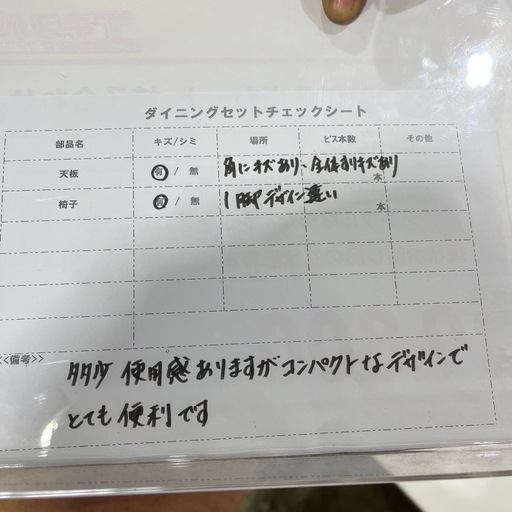 ダイニングセットチェックシート
部品名 キズ/シミ 場所 ビス本数 その他
天板 有 / 無 角にキズあり、全体すりキズあり 本
椅子 有 / 無 1脚デザイン違い 本
<<備考>>
多少 使用感ありますがコンパクトなデザインで
とても便利です